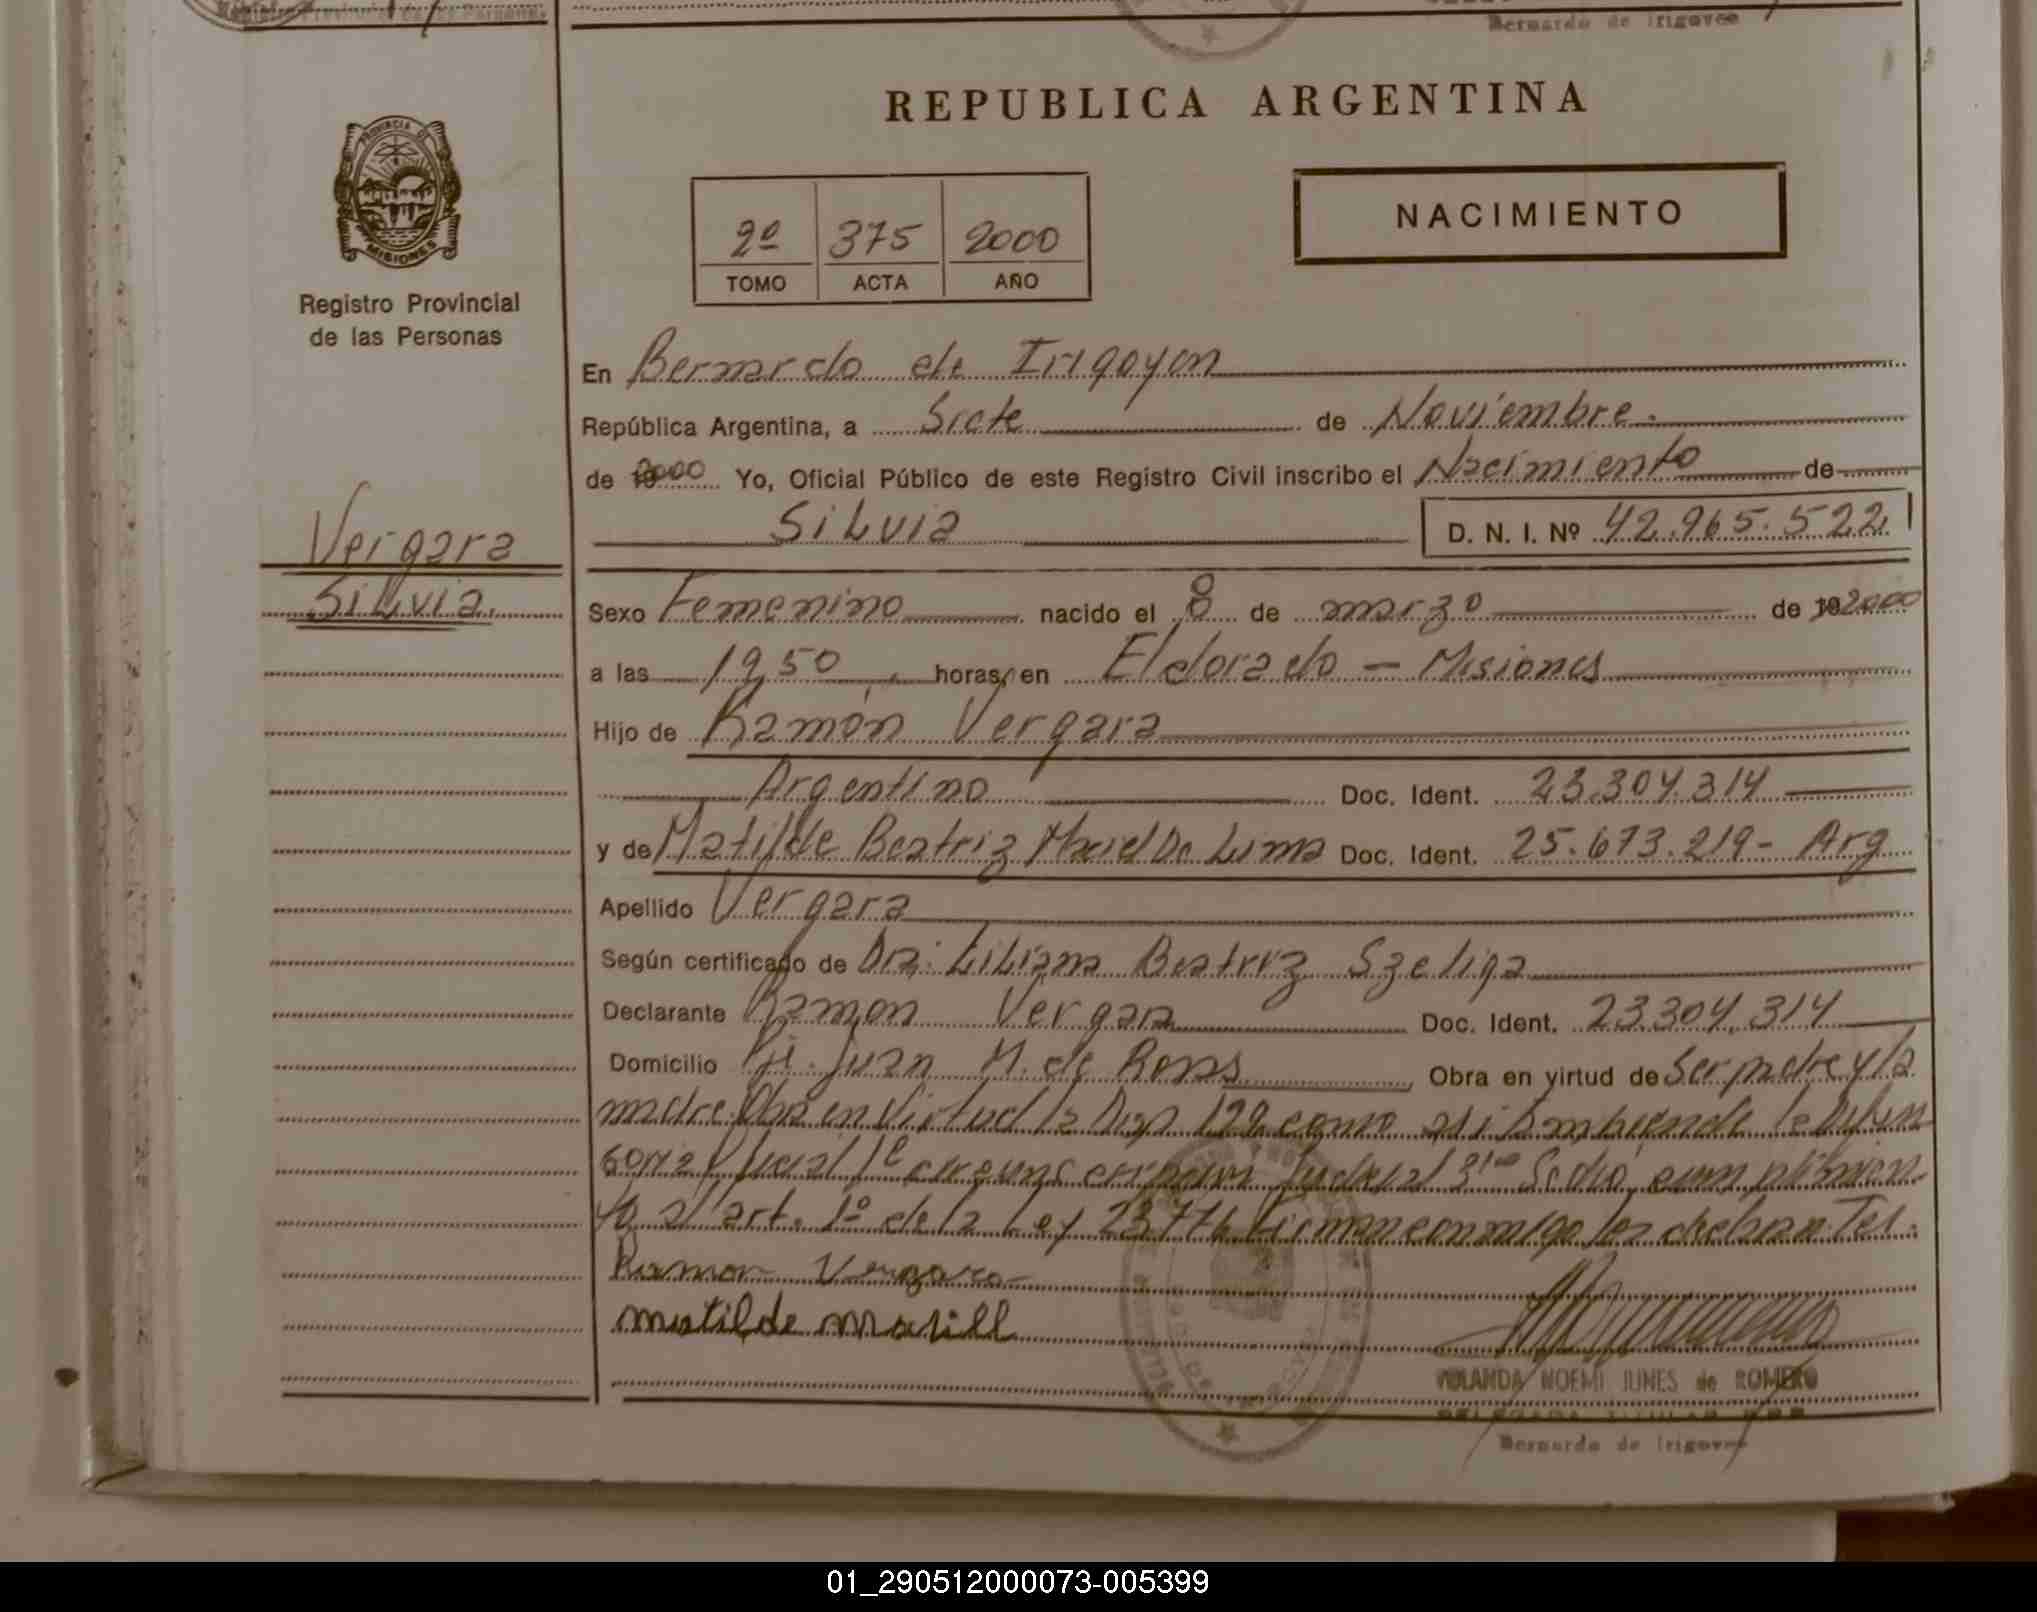 Bernardo de Irigoyen
REPUBLICA ARGENTINA
PROVINCIA DE
MISIONES
Registro Provincial
de las Personas
2º 375 2000
TOMO ACTA AÑO
NACIMIENTO
En Bernardo de Irigoyen
República Argentina, a Siete de Noviembre.
de 2000 Yo, Oficial Público de este Registro Civil inscribo el Nacimiento de
Silvia D. N. I. Nº 42.965.522
Vergara
Silvia.
Sexo Femenino nacido el 8 de marzo de 2000
a las 19,50 horas, en Eldorado - Misiones
Hijo de Ramón Vergara
Argentino Doc. Ident. 23.304.314
y de Matilde Beatriz Maciel Da Lima Doc. Ident. 25.673.219- Arg
Apellido Vergara
Según certificado de Dra: Liliana Beatriz Szeliga
Declarante Ramon Vergara Doc. Ident. 23.304.314
Domicilio Juan M. de Rosas Obra en virtud de Ser padre y la
madre Obra en Virtud la Disp 122 como asi
judicial
al art. 1º de la Ley 23776 Firman conmigo los
Ramon Vergara
matilde
YOLANDA NOEMI JUNES de ROMERO
Bernardo de Irigoyen
01_290512000073-005399